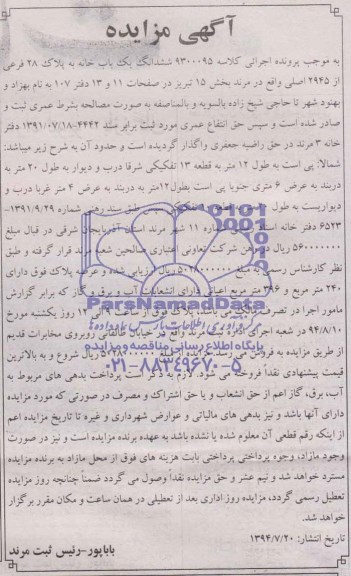 آگهی مزایده
به موجب پرونده اجرائی کلاسه ۹۳۰۰۰۹۵ ششدانگ یک باب خانه به پلاک ۲۸ فرعی
از ۲۹۴۵ اصلی واقع در مرند بخش ۱۵ تبریز در صفحات ۱۱ و ۱۳ دفتر ۱۰۷ به نام بهزاد و
بهنود شهر تا حاجی شیخ زاده بالسویه و بالمناصفه به صورت مصالحه بشرط عمری ثبت و
صادر شده است و سپس حق انتفاع عمری مورد ثبت برابر سند ۴۴۴۲-۱۳۹۱/۰۷/۱۸ دفتر
خانه ۳ مرند در حق راضیه جعفری واگذار گردیده است و حدود آن به شرح زیر میباشد:
شمالا: پی است به طول ۱۲ متر به قطعه ۱۳ تفکیکی شرقا درب و دیوار به طول ۲۰ متر به
دربند به عرض ۶ متری جنوبا پی است بطول ۱۲متر به دربند به عرض ۴ متر غربا درب و
دیواریست به طول سند رهنی شماره ۱۳۹۱/۹/۲۹-
۶۵۲۳ دفتر خانه اسناد ۱۱ شهر مرند استان آذربایجان شرقی در قبال مبلغ
۵۶۰۰۰۰۰۰۰ ریال در رهن شرکت تعاونی اعتباری صالحین شعبه مرند قرار گرفته و طبق
نظر کارشناس رسمی به مبلغ ریال ارزیابی شده و عرصه پلاک فوق دارای
۲۴۰ متر مربع و ۳۹۶ متر مربع اعیانی دارای انشعابات آب و برق و گاز که برابر گزارش
مامور اجرا در تصرف مالک می باشد، پلاک فوق از ساعت ۹ الی ۱۲ روز یکشنبه مورخ
۹۴/۸/۱۰ در شعبه اجرای مرند واقع در خیابان طالقانی روبروی مخابرات قدیم
از طریق مزایده به فروش می رسد. مزایده از مبلغ ریال شروع و به بالاترین
قیمت پیشنهادی نقداً فروخته می شود. لازم به ذکر است پرداخت بدهی های مربوط به
آب، برق، گاز اعم از حق انشعاب و یا حق اشتراک و مصرف در صورتی که مورد مزایده
دارای آنها باشد و نیز بدهی های مالیاتی و عوارض شهرداری و غیره تا تاریخ مزایده اعم
از اینکه رقم قطعی آن معلوم شده یا نشده باشد به عهده برنده مزایده است و نیز در صورت
وجود مازاد، وجوه پرداختی پرداختی بابت هزینه های فوق از محل مازاد به برنده مزایده
مسترد خواهد شد و نیم عشر و حق مزایده نقداً وصول می گردد ضمناً چنانچه روز مزایده
تعطیل رسمی گردد، مزایده روز اداری بعد از تعطیلی در همان ساعت و مکان مقرر برگزار
خواهد شد.
تاریخ انتشار: ۱۳۹۴/۷/۲۰
باباپور-رئیس ثبت مرند
ParsNamadData
پایگاه اطلاع رسانی مناقصه و مزایده
۰۲۱-۸۸۳۴۹۶۷۰-۵